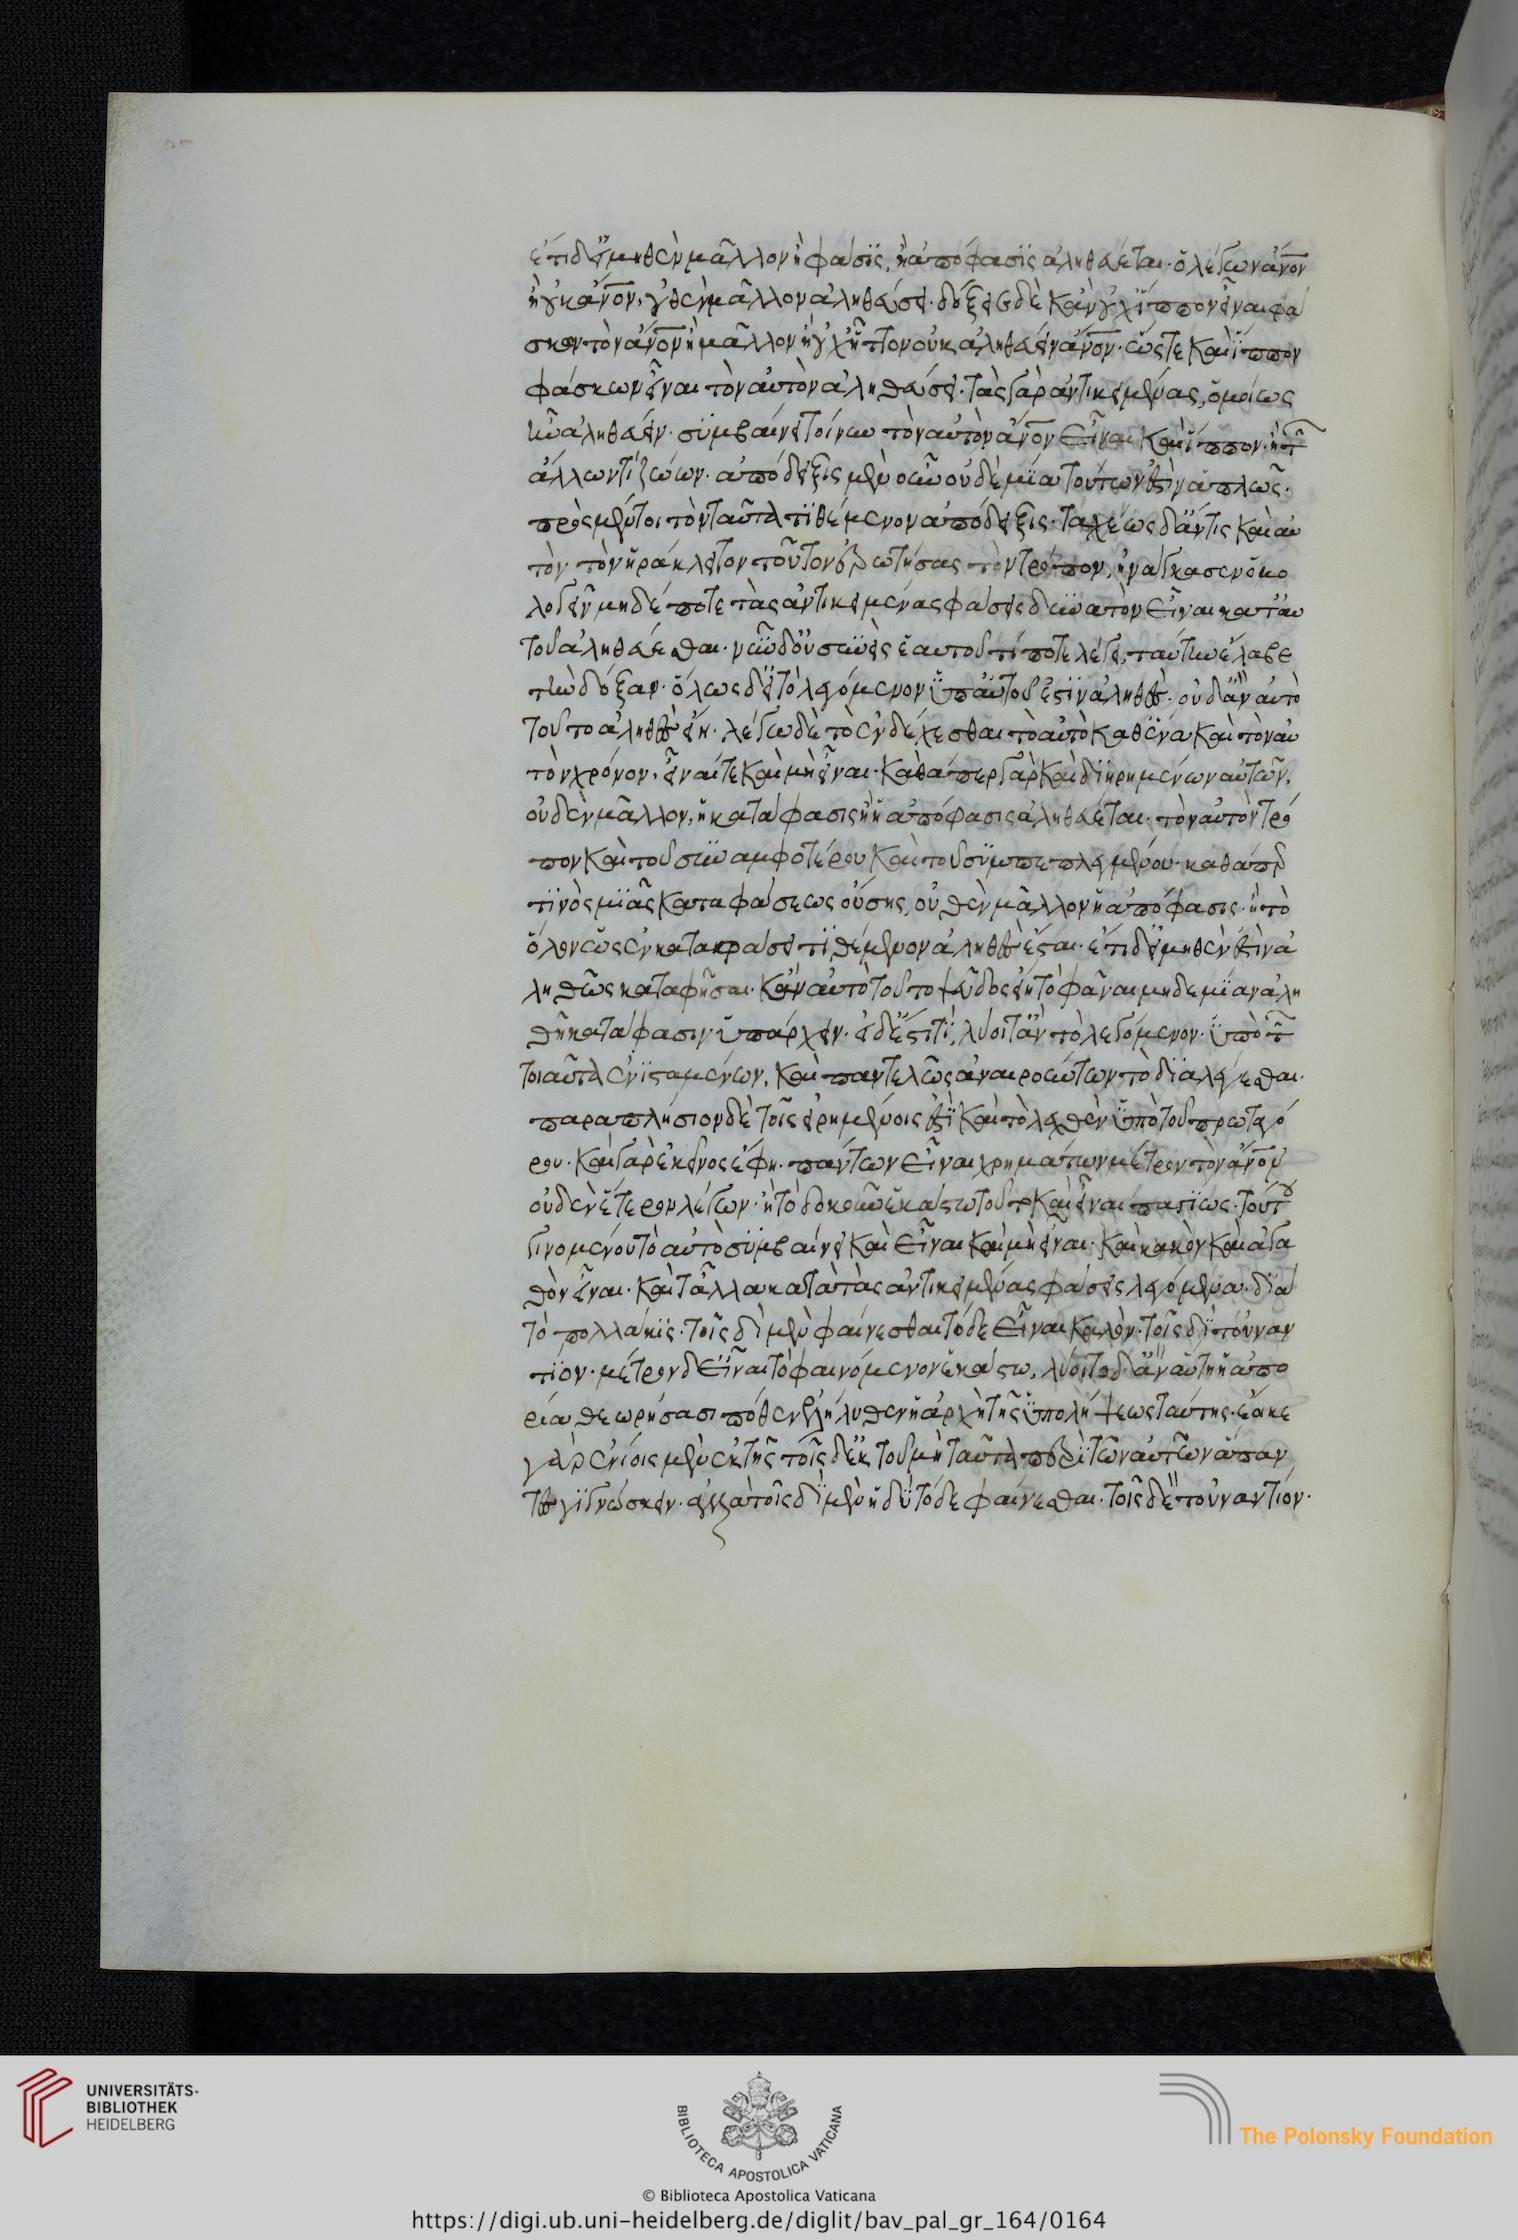 ἔτι δ' εἰ μηθὲν μᾶλλον ἡ φάσις, ἢ ἀπόφασις ἀληθεύεται· ὁ λέγων ἄνον
ἢ οὐκ ἄνον, οὐθὲν μᾶλλον ἀληθεύσει· δόξειε δὲ κἂν οὐχ ἵππον εἶναι φά
σκων τὸν ἄνον ἢ μᾶλλον ἢ οὐχ ἧττον οὐκ ἀληθεύειν ἄνον· ὥστε καὶ ἵππον
φάσκων εἶναι τὸν αὐτὸν ἀληθεύσει· τὰς γὰρ ἀντικειμένας, ὁμοίως
ἦν ἀληθεύειν· συμβαίνει τοίνυν τὸν αὐτὸν ἄνον εἶναι καὶ ἵππον· ἢ τῶν
ἄλλων τι ζώων· ἀπόδειξις μὲν οὖν οὐδὲ μία τούτων ἐστὶν ἁπλῶς·
πρὸς μέντοι τὸν ταῦτα τιθέμενον ἀπόδειξις· ταχέως δ' ἄν τις καὶ αὐ
τὸν τὸν ἡράκλειτον τοῦτον ἐρωτήσας τὸν τρόπον, ἠνάγκασεν ὁμο
λογεῖν μηδέποτε τὰς ἀντικειμένας φάσεις δυνατὸν εἶναι κατ' αὐ
τοῦ ἀληθεύεσθαι· νῦν δ' οὐ συνιεὶς ἑαυτοῦ τί ποτε λέγει, ταύτην ἔλαβε
τὴν δόξαν· ὅλως δ' εἰ τὸ λεγόμενον ὑπ' αὐτοῦ ἐστὶν ἀληθές· οὐδ' ἂν αὐτὸ
τοῦτο ἀληθὲς εἴη· λέγω δὲ τὸ ἐνδέχεσθαι τὸ αὐτὸ καθ' ἕνα καὶ τὸν αὐ
τὸν χρόνον, εἶναί τε καὶ μὴ εἶναι· καθάπερ γὰρ καὶ διῃρημένων αὐτῶν,
οὐδὲν μᾶλλον, ἡ κατάφασις ἢ ἡ ἀπόφασις ἀληθεύεται· τὸν αὐτὸν τρό
πον καὶ τοῦ συναμφοτέρου καὶ τοῦ συμπεπλεγμένου· καθάπερ
τινὸς μιᾶς καταφάσεως οὔσης, οὐθὲν μᾶλλον ἡ ἀπόφασις· ἢ τὸ
ὅλον ὡς ἐν καταφάσει τιθέμενον ἀληθὲς ἔσται· ἔτι δ' εἰ μηθὲν ἐστὶν ἀ
ληθῶς καταφῆσαι· κἂν αὐτὸ τοῦτο ψεῦδος εἴη τὸ φάναι μηδεμίαν ἀλη
θῆ κατάφασιν ὑπάρχειν· εἰ δ' ἔστι τί, λύοιτ' ἂν τὸ λεγόμενον· ὑπὸ τῶν
τοιαῦτα ἐνισταμένων, καὶ παντελῶς ἀναιρούντων τὸ διαλέγεσθαι·
παραπλήσιον δὲ τοῖς εἰρημένοις ἐστὶ καὶ τὸ λεχθὲν ὑπὸ τοῦ πρωταγό
ρου· καὶ γὰρ ἐκεῖνος ἔφη· πάντων εἶναι χρημάτων μέτρον τὸν ἄνον
οὐδὲν ἕτερον λέγων· ἢ τὸ δοκοῦν ἑκάστω τοῦτο καὶ εἶναι παγίως· τούτου
γινομένου τὸ αὐτὸ συμβαίνει καὶ εἶναι καὶ μὴ εἶναι· καὶ κακὸν καὶ ἀγα
θὸν εἶναι· καὶ τἆλλα κατὰ τὰς ἀντικειμένας φάσεις λεγόμενα· διὰ
τὸ πολλάκις· τοῖς δὶ μὲν φαίνεσθαι τόδε εἶναι καλὸν· τοῖς δὶ τοὐναν
τίον· μέτρον δ' εἶναι τὸ φαινόμενον ἑκάστω, λύοιτο δ' ἂν αὕτη ἡ ἀπο
ρία θεωρήσασι πόθεν ἐλήλυθεν ἡ ἀρχὴ τῆς ὑπολήψεως ταύτης· ἔοικε
γὰρ ἐνίοις μὲν ἐκ τῆς τοῖς δ' ἐκ τοῦ μὴ ταῦτα περὶ τῶν αὐτῶν ἅπαν
τας γιγνώσκειν· ἀλλὰ τοῖς δὶ μὲν ἡδὺ τόδε φαίνεσθαι· τοῖς δὲ τοὐναντίον·
UNIVERSITÄTS-
BIBLIOTHEK
HEIDELBERG
BIBLIOTECA APOSTOLICA VATICANA
The Polonsky Foundation
© Biblioteca Apostolica Vaticana
https://digi.ub.uni-heidelberg.de/diglit/bav_pal_gr_164/0164